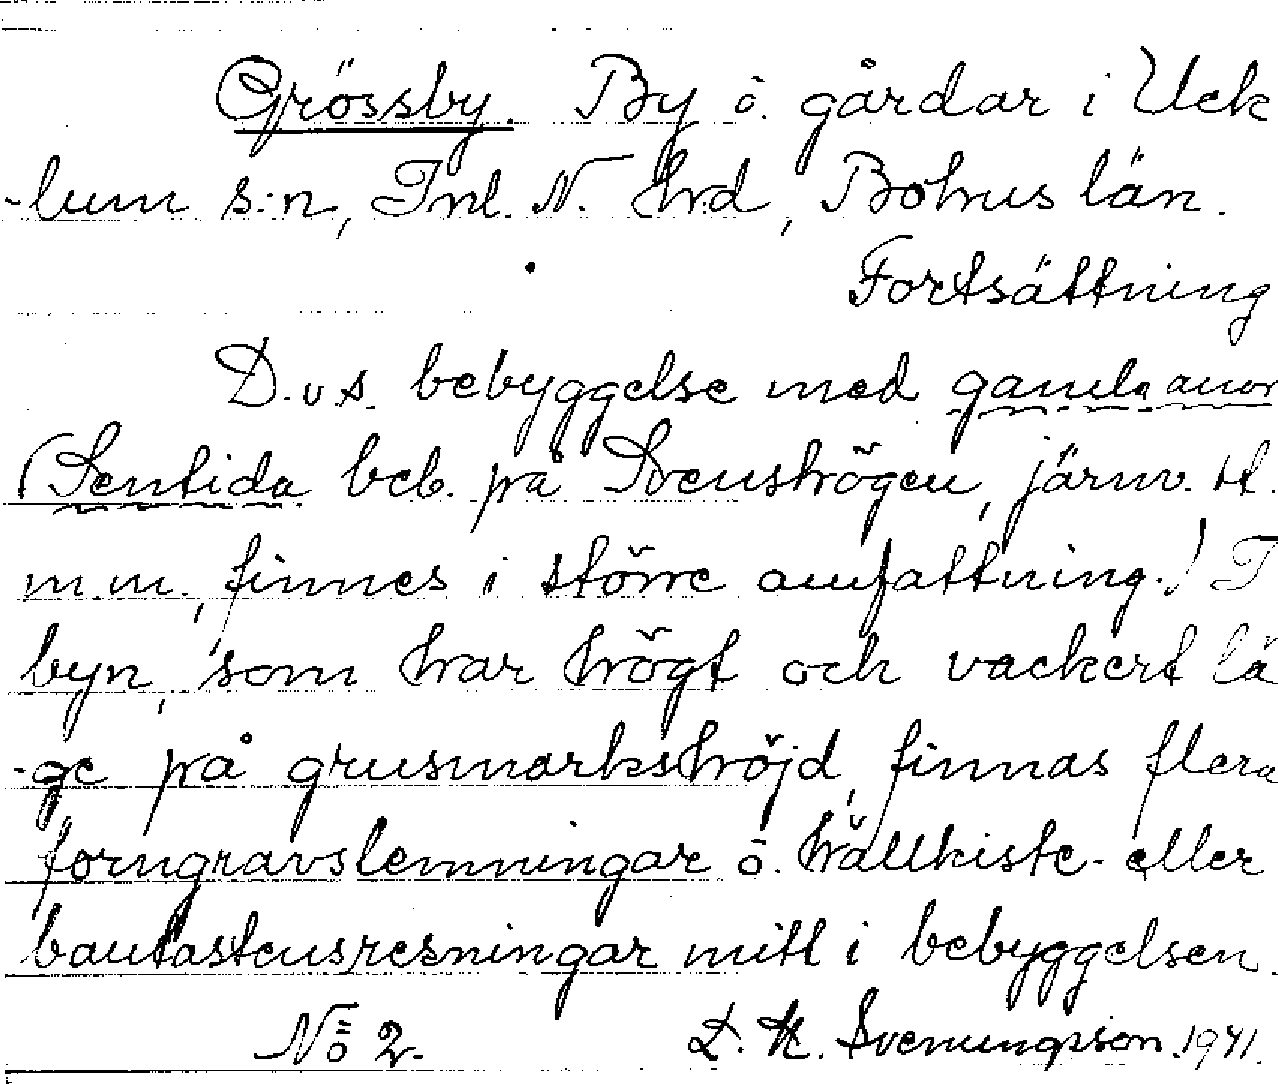 Grössby. By ö. gårdar i Uck
-lum s:n, Inl. N. hrd, Bohus län.
Fortsättning
D.v.s. bebyggelse med gamla anor
(Sentida beb. på Svenshögen, järnv. st.
m.m., finnes i större omfattning.) I
byn, som har högt och vackert lä
-ge på grusmarkshöjd, finnas flera
forngravslemningar ö. hällkiste- eller
bautastensresningar mitt i bebyggelsen.
No 2. Svenungsson. 1941.